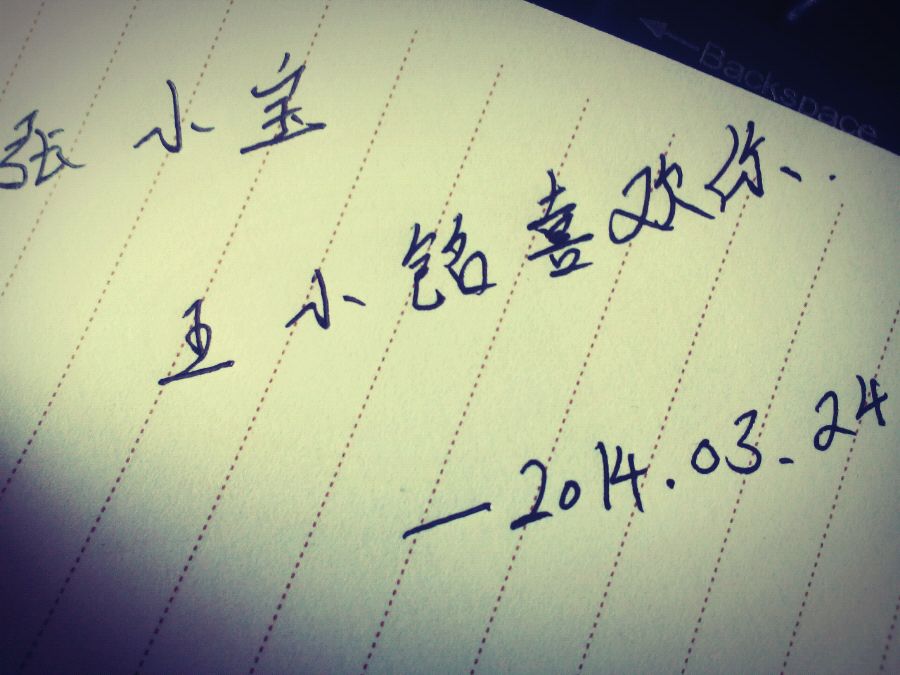 张小宝
王小铭喜欢你..
—2014.03.24
← Backspace